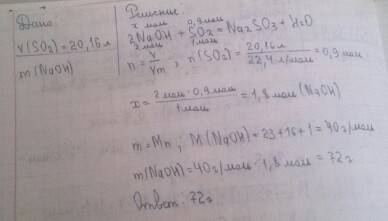 Дано
V(SO₂)=20,16л
m(NaOH)
Решение:
x моль 0,9моль
2NaOH + SO₂ = Na₂SO₃ + H₂O
2моль 1моль
n = V/Vm ; n(SO₂) = 20,16л/22,4л/моль = 0,9моль
x = 2моль·0,9моль/1моль = 1,8моль (NaOH)
m = Mn ; M(NaOH) = 23+16+1 = 40г/моль
m(NaOH) = 40г/моль · 1,8моль = 72г
Ответ: 72г